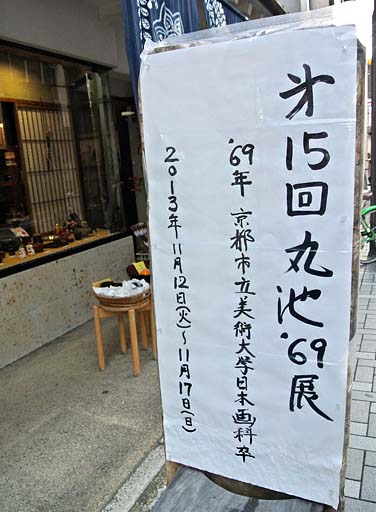 第15回丸池'69展
'69年 京都市立美術大学日本画科卒
2013年11月12日(火)〜11月17日(日)